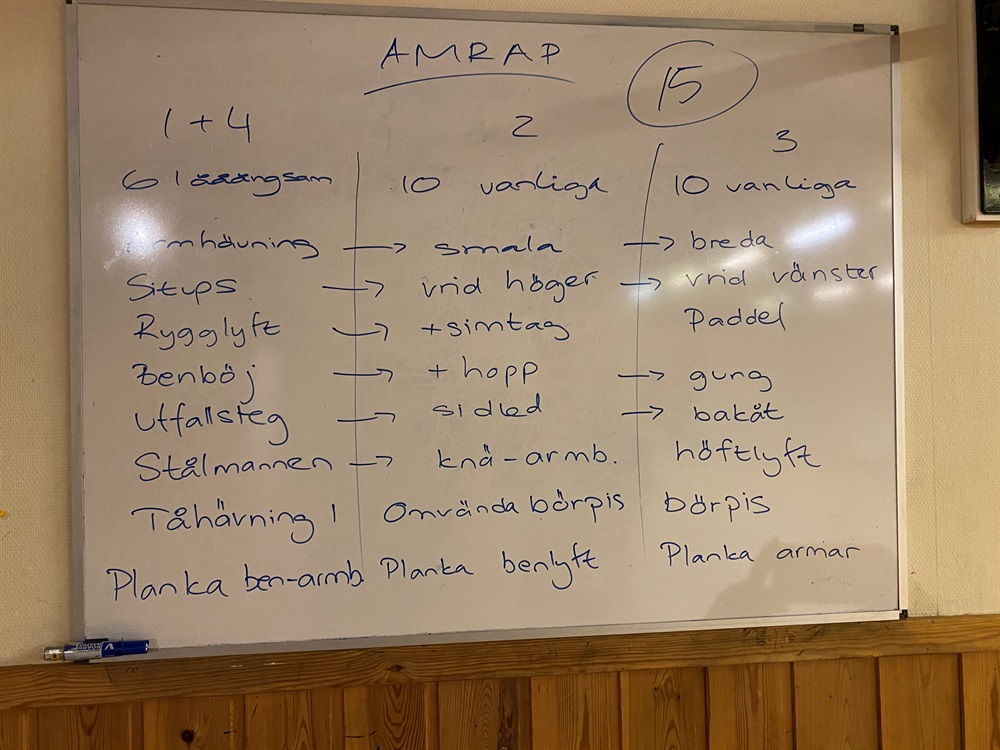 AMRAP
15
1+4
2
3
6 låååångsam
10 vanliga
10 vanliga
Armhävning → smala → breda
Situps → vrid höger → vrid vänster
Rygglyft → +simtag Paddel
Benböj → + hopp → gung
Utfallsteg → sidled → bakåt
Stålmannen → knä-armb. höftlyft
Tåhävning 1 Omvända börpis börpis
Planka ben-armb. Planka benlyft Planka armar